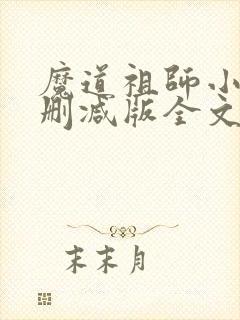 魔道祖师小
删减版全文
末末月